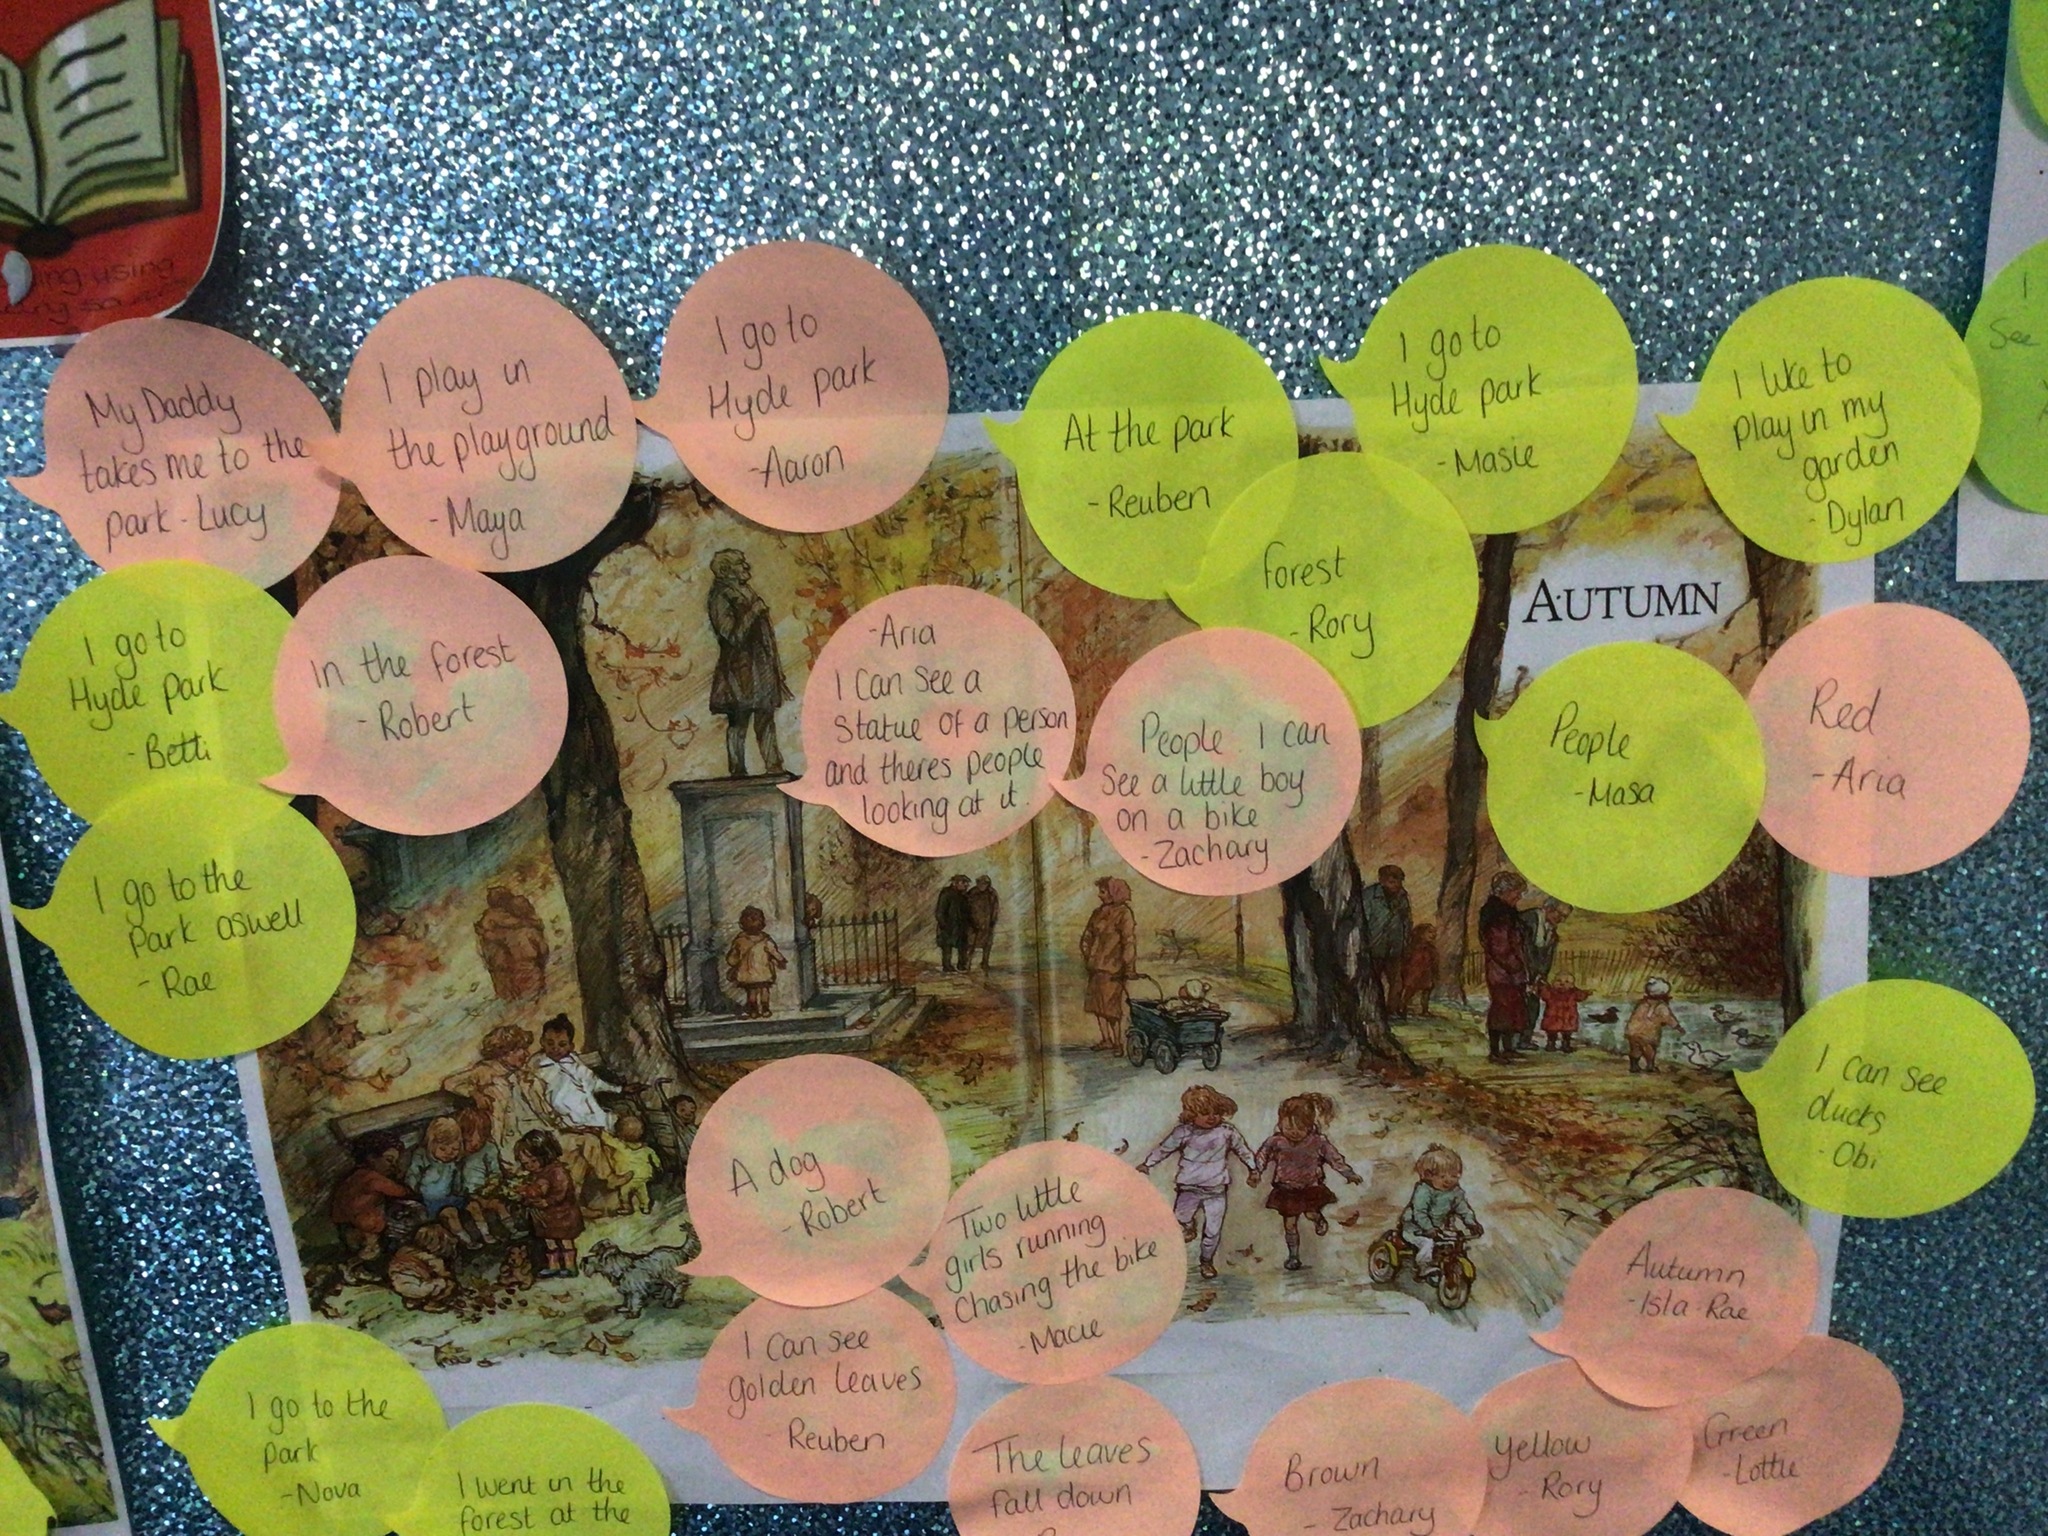 My Daddy
takes me to the
park - Lucy
I play in
the playground
- Maya
I go to
Hyde park
- Aaron
At the park
- Reuben
I go to
Hyde park
- Masie
I like to
play in my
garden
- Dylan
I
See
I go to
Hyde park
- Betti
In the forest
- Robert
- Aria
I can see a
statue of a person
and theres people
looking at it.
forest
- Rory
People. I can
See a little boy
on a bike
- Zachary
AUTUMN
People
- Masa
Red
- Aria
I go to the
park aswell
- Rae
I can see
ducks
- Obi
A dog
- Robert
Two little
girls running
Chasing the bike
- Macie
I can see
golden leaves
- Reuben
Autumn
- Isla-Rae
I go to the
park
- Nova
I went in the
forest at the
The leaves
fall down
Brown
- Zachary
Yellow
- Rory
Green
- Lottie